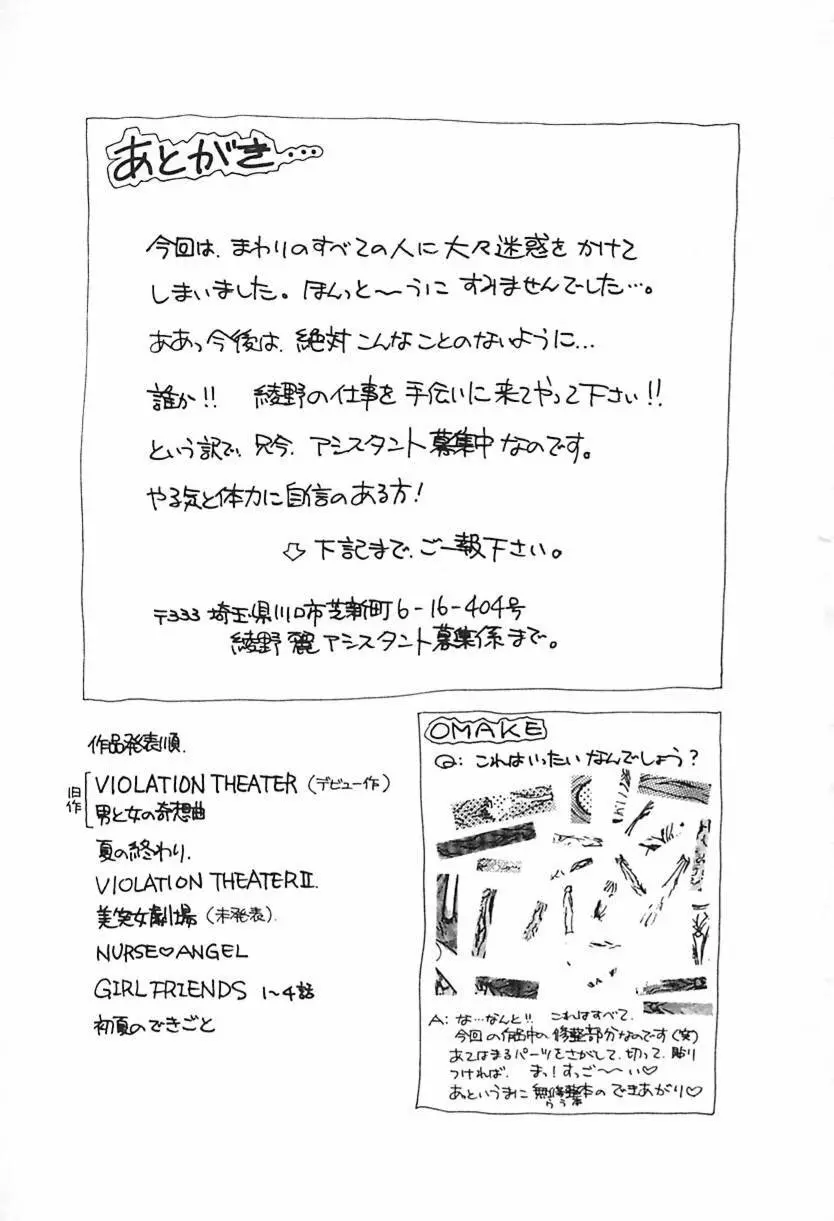 あとがき…
今回は、まわりのすべての人に大々迷惑をかけて
しまいました。ほんっと〜うにすみませんでした…。
ああっ今後は、絶対こんなことのないように…
誰か!! 綾野の仕事を手伝いに来てやって下さい!!
という訳で、只今、アシスタント募集中なのです。
やる気と体力に自信のある方!
⇩下記まで、ご一報下さい。
〒333 埼玉県川口市芝新町6-16-404号
綾野 麗 アシスタント募集係まで。
作品発表順
旧作
VIOLATION THEATER (デビュー作)
男と女の奇想曲
夏の終わり
VIOLATION THEATER II
美笑女劇場(未発表)
NURSE♡ANGEL
GIRL FRIENDS 1〜4話
初夏のできごと
OMAKE
Q: これはいったいなんでしょう?
A: な…なんと!! これはすべて、
今回の作品中の修整部分なのです(笑)
あてはまるパーツをさがして、切って、貼り
つければ、まっ!すっご〜〜い♡
あっというまに無修整本のできあがり♡